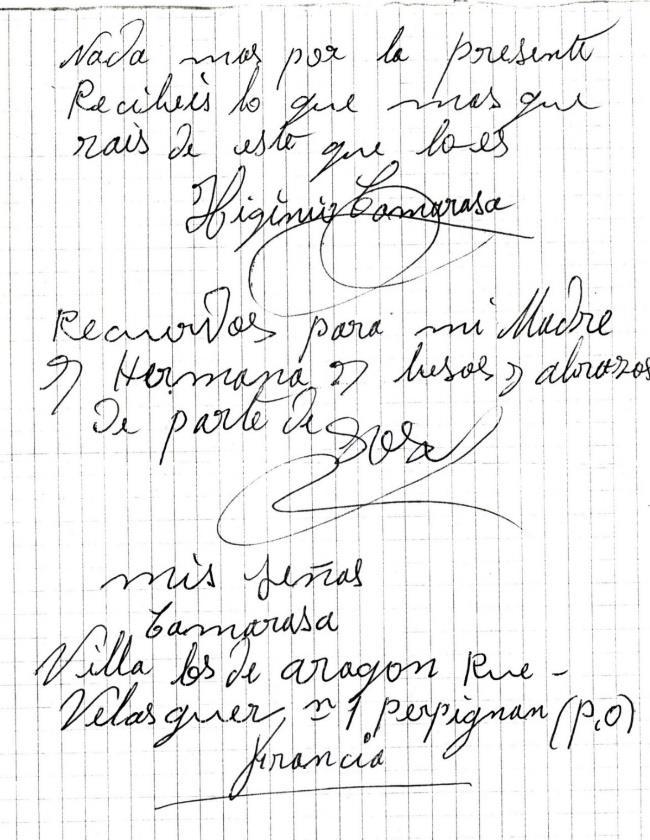 Nada mas por la presente
Recibeis lo que mas que
rais de este que lo es
Higinio Camarasa
Recuerdos para mi Madre
y Hermana y besos y abrazos
de parte de Rosa
mis señas
Camarasa
Villa los de aragon Rue -
Velasquer, nº 1 perpignan (p.o)
francia